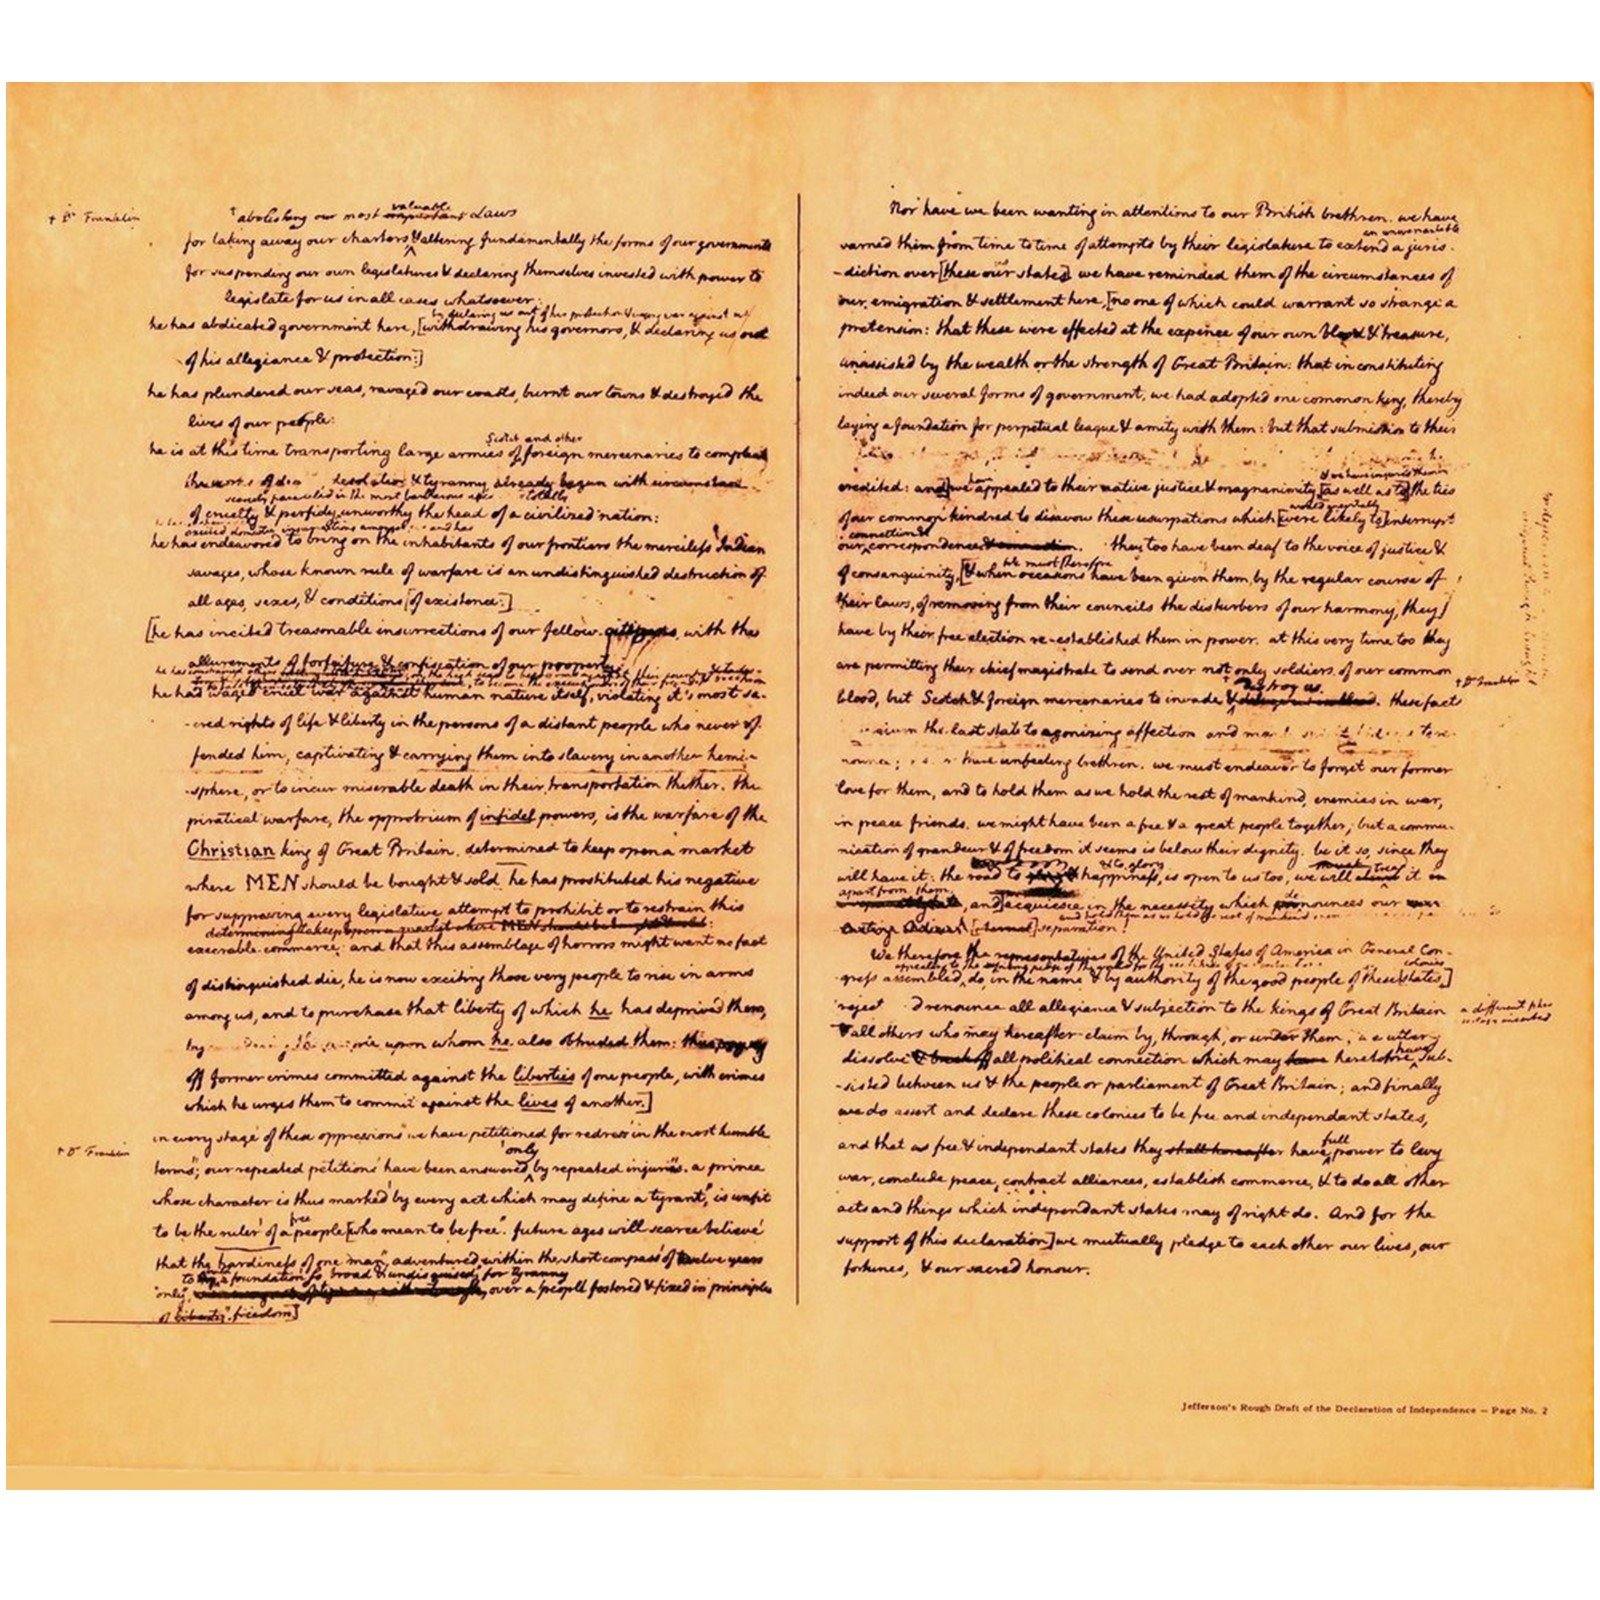 † Dr Franklin
† abolishing our most important valuable Laws
for taking away our charters & altering fundamentally the forms of our governments
for suspending our own legislatures & declaring themselves invested with power to
legislate for us in all cases whatsoever:
by declaring us out of his protection & waging war against us
he has abdicated government here, [withdrawing his governors, & declaring us out
of his allegiance & protection:]
he has plundered our seas, ravaged our coasts, burnt our towns & destroyed the
lives of our people:
Scotch and other
he is at this time transporting large armies of foreign mercenaries to compleat
the works of desolation & tyranny already begun with circumstances
scarcely paralleled in the most barbarous ages totally
of cruelty & perfidy unworthy the head of a civilized nation:
excited domestic insurrections amongst and has
he has endeavored to bring on the inhabitants of our frontiers the merciless Indian
savages, whose known rule of warfare is an undistinguished destruction of
all ages, sexes, & conditions [of existence:]
[he has incited treasonable insurrections of our fellow-citizens, with the
allurements of forfeiture & confiscation of our property:
he has waged cruel war against human nature itself, violating it's most sa-
-cred rights of life & liberty in the persons of a distant people who never of-
fended him, captivating & carrying them into slavery in another hemi-
-sphere, or to incur miserable death in their transportation thither. this
piratical warfare, the opprobrium of infidel powers, is the warfare of the
Christian king of Great Britain. determined to keep open a market
where MEN should be bought & sold he has prostituted his negative
for suppressing every legislative attempt to prohibit or to restrain this
determining to keep open a market where MEN should be bought & sold:
execrable commerce: and that this assemblage of horrors might want no fact
of distinguished die, he is now exciting those very people to rise in arms
among us, and to purchase that liberty of which he has deprived them,
by upon whom he also obtruded them: thus paying
off former crimes committed against the liberties of one people, with crimes
which he urges them to commit against the lives of another.]
in every stage of these oppressions we have petitioned for redress in the most humble
† Dr Franklin
only
terms; our repeated petitions have been answered by repeated injuries. a prince
whose character is thus marked by every act which may define a tyrant, is unfit
free
to be the ruler of a people [who mean to be free. future ages will scarce believe
that the hardiness of one man, adventured within the short compass of twelve years
to a foundation so broad & undisguised, for tyranny
only, over a people fostered & fixed in principles
of liberty. freedom]
Nor have we been wanting in attentions to our British brethren. we have
an unwarrantable
warned them from time to time of attempts by their legislature to extend a juris-
-diction over [these our states] we have reminded them of the circumstances of
our emigration & settlement here, [no one of which could warrant so strange a
pretension: that these were effected at the expence of our own blood & treasure,
unassisted by the wealth or the strength of Great Britain: that in constituting
indeed our several forms of government, we had adopted one common king, thereby
laying a foundation for perpetual league & amity with them: but that submission to their
credited: and] we have appealed to their native justice & magnanimity [as well as to] the ties
of our common kindred to disavow these usurpations which [were likely to] interrupt
connection &
our correspondence & connection. they too have been deaf to the voice of justice &
we must therefore
of consanguinity, [& when occasions have been given them, by the regular course of
their laws, of removing from their councils the disturbers of our harmony, they]
have by their free election re-established them in power. at this very time too they
are permitting their chief magistrate to send over not only soldiers of our common
destroy us
† Dr Franklin
blood, but Scotch & foreign mercenaries to invade & deluge us in blood. these facts
given the last stab to agonizing affection and
unfeeling brethren. we must endeavor to forget our former
love for them, and to hold them as we hold the rest of mankind, enemies in war,
in peace friends. we might have been a free & a great people together; but a commu-
nication of grandeur & of freedom it seems is below their dignity. be it so, since they
& to glory must tread
will have it: the road to happiness, is open to us too, we will it
apart from them
and [acquiesce in the necessity which denounces our
everlasting Adieu! [eternal] separation!
We therefore the representatives of the United States of America in General Con-
colonies
gress assembled, do, in the name & by authority of the good people of these [states,]
reject & renounce all allegiance & subjection to the kings of Great Britain
a different phra
& all others who may hereafter claim by, through, or under them; we utterly
dissolve & break off all political connection which may have heretofore sub-
-sisted between us & the people or parliament of Great Britain; and finally
we do assert and declare these colonies to be free and independant states,
full
and that as free & independant states they shall hereafter have power to levy
war, conclude peace, contract alliances, establish commerce, & to do all other
acts and things which independant states may of right do. And for the
support of this declaration] we mutually pledge to each other our lives, our
fortunes, & our sacred honour.
Jefferson's Rough Draft of the Declaration of Independence — Page No. 2